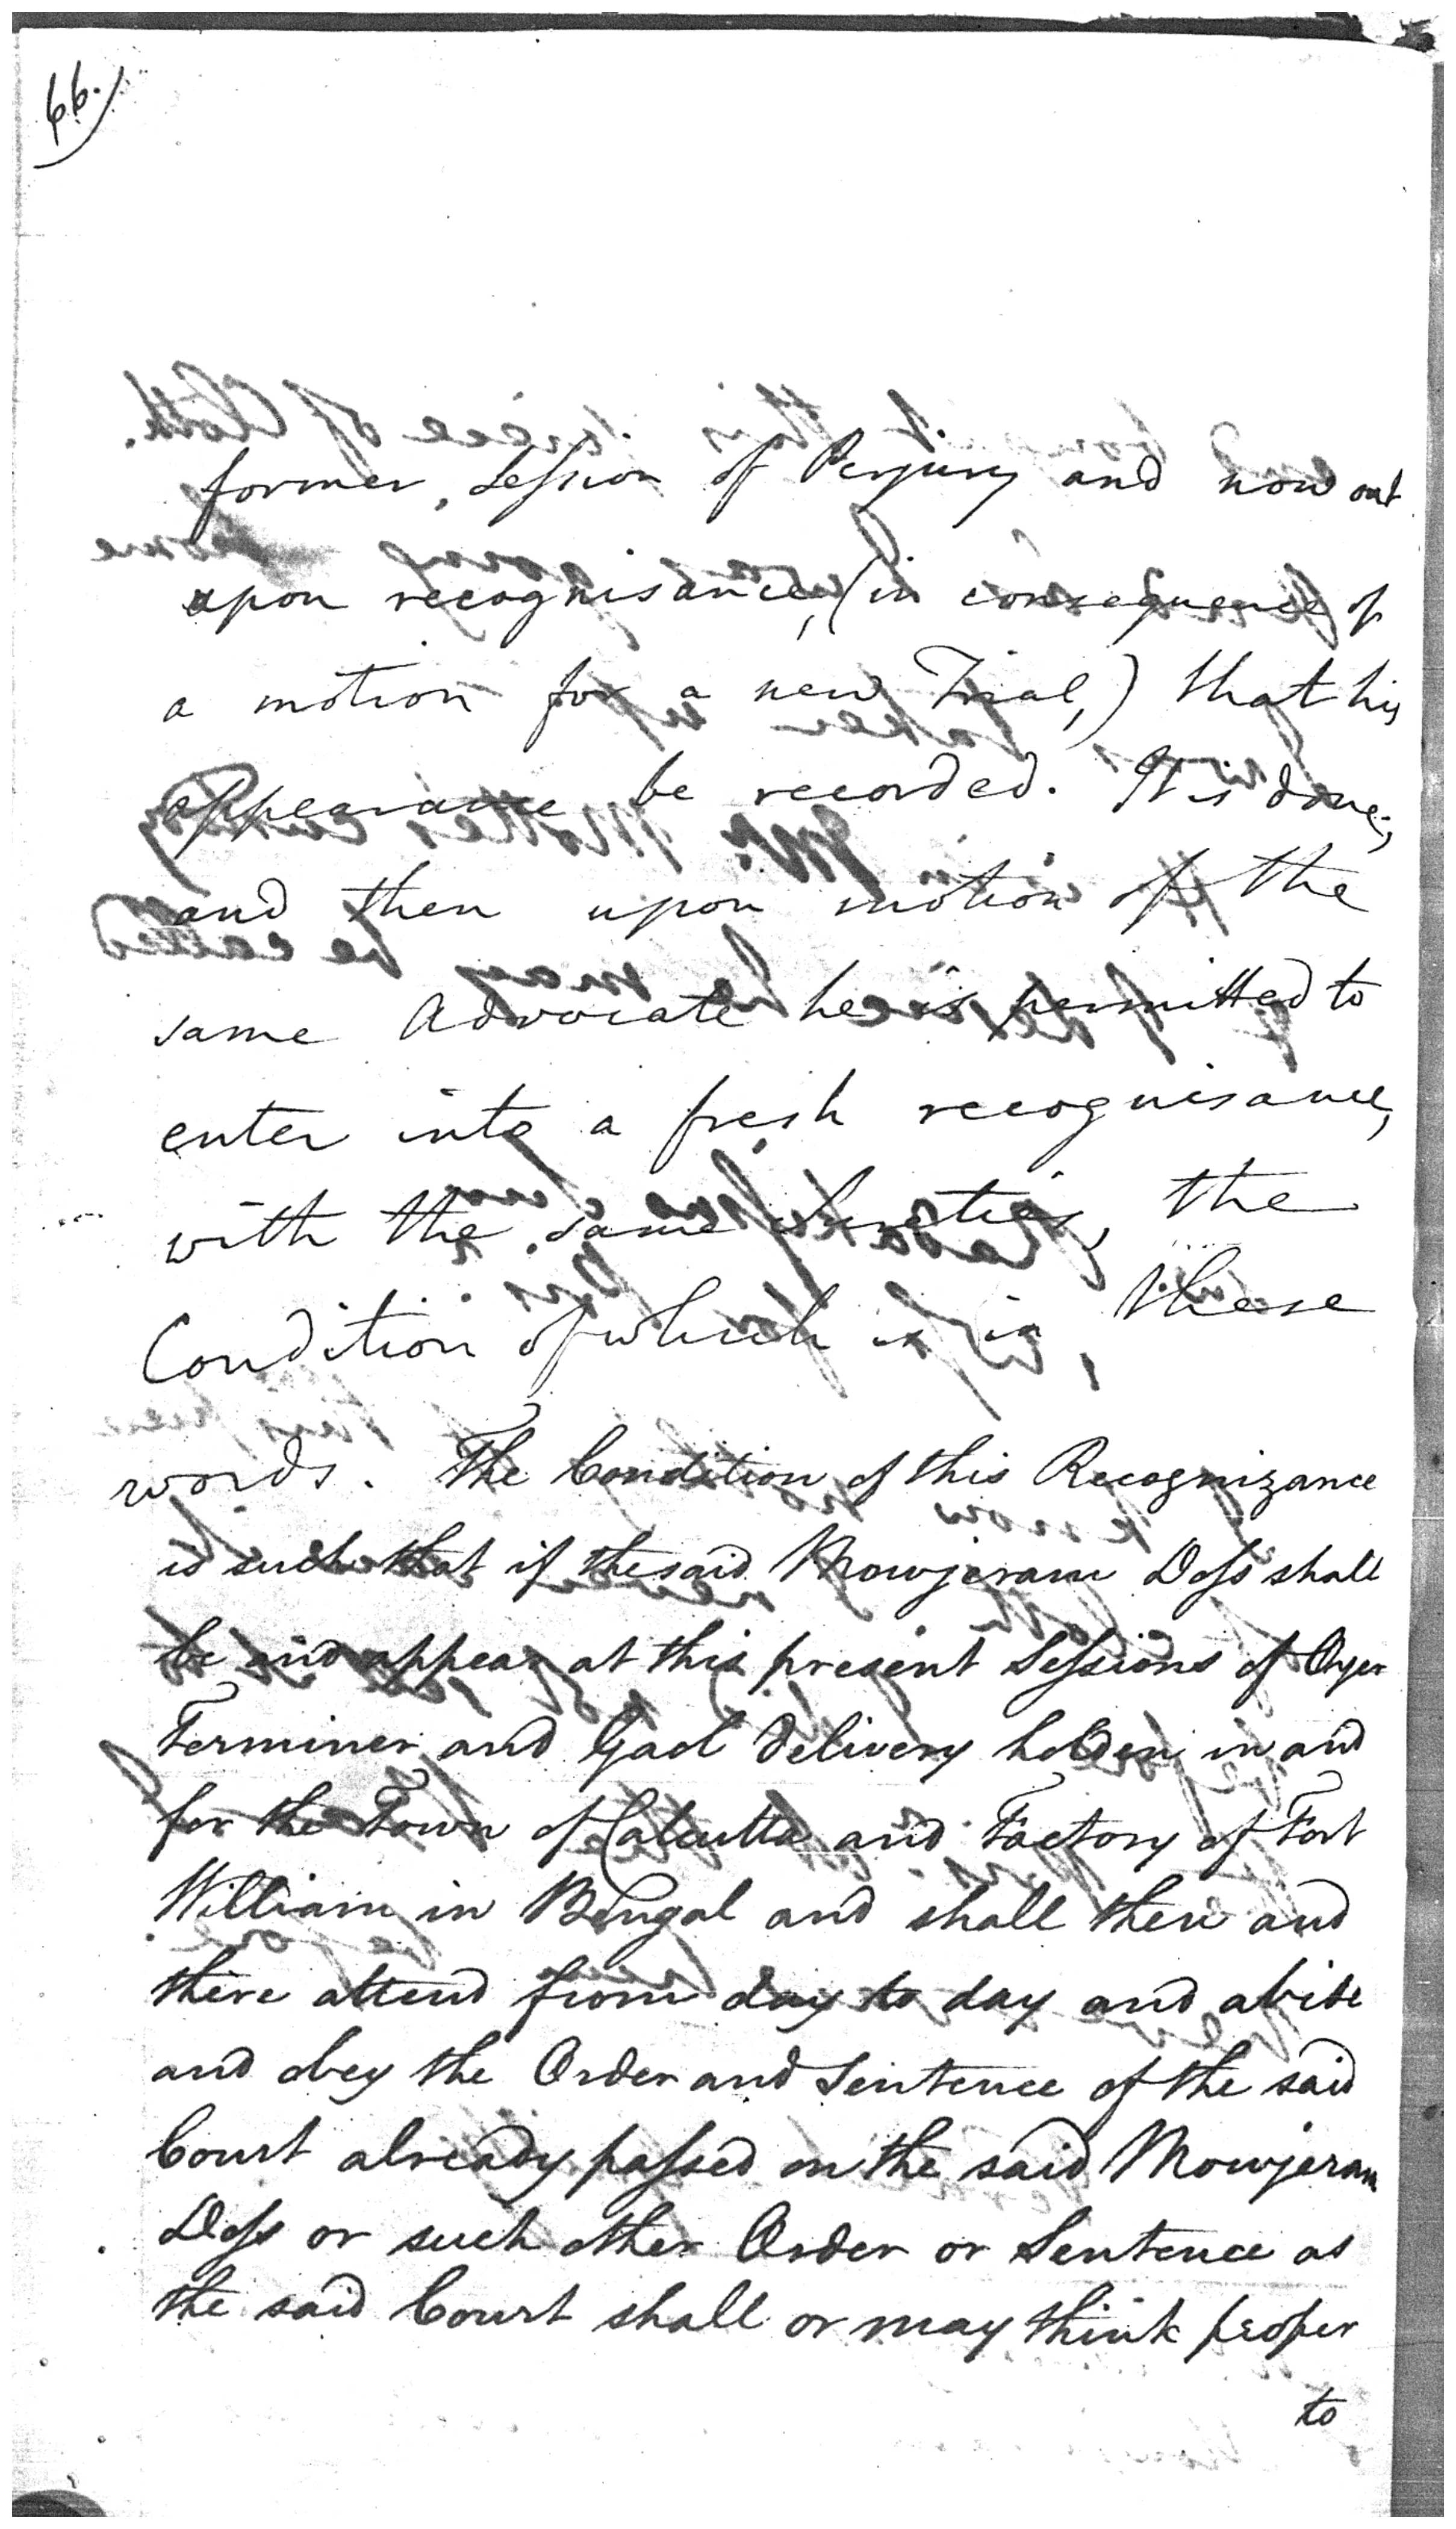 66.
former, Session of Perjury and now out
upon recognisance, (in consequence of
a motion for a new Trial,) that his
appearance be recorded. It is done;
and then upon motion of the
same Advocate he is permitted to
enter into a fresh recognisance,
with the same Sureties, the
Condition of which is in these
words. The Condition of this Recognizance
is such that if the said Mowjeram Doss shall
be and appear at this present Sessions of Oyer
Terminer and Gaol Delivery holden in and
for the Town of Calcutta and Factory of Fort
William in Bengal and shall then and
there attend from day to day and abide
and obey the Order and Sentence of the said
Court already passed on the said Mowjeram
Doss or such other Order or Sentence as
the said Court shall or may think proper
to